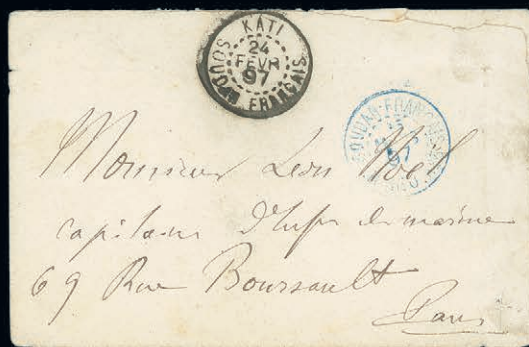 KATI
24
FEVR
97
SOUDAN FRANCAIS
SOUDAN-FRANC
15
97
Monsieur Léon Noel
capitaine d'Infie de marine
69 Rue Boursault
Paris